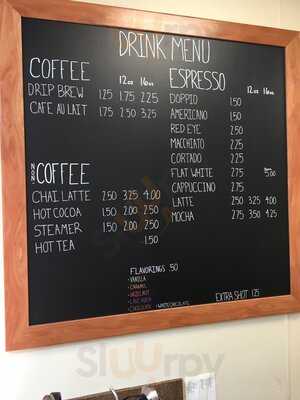 DRINK MENU
COFFEE
12oz 16oz
DRIP BREW 1.25 1.75 2.25
CAFE AU LAIT 1.75 2.50 3.25
NON COFFEE
CHAI LATTE 2.50 3.25 4.00
HOT COCOA 1.50 2.00 2.50
STEAMER 1.50 2.00 2.50
HOT TEA 1.50
ESPRESSO
12oz 16oz
DOPPIO 1.50
AMERICANO 1.50
RED EYE 2.50
MACCHIATO 2.25
CORTADO 2.25
FLAT WHITE 2.75 5.00
CAPPUCCINO 2.75
LATTE 2.50 3.25 4.00
MOCHA 2.75 3.50 4.25
FLAVORINGS .50
- VANILLA
- CARAMEL
- HAZELNUT
- LAVENDER
- CHOCOLATE / WHITE CHOCOLATE
EXTRA SHOT 1.25
Sluurpy